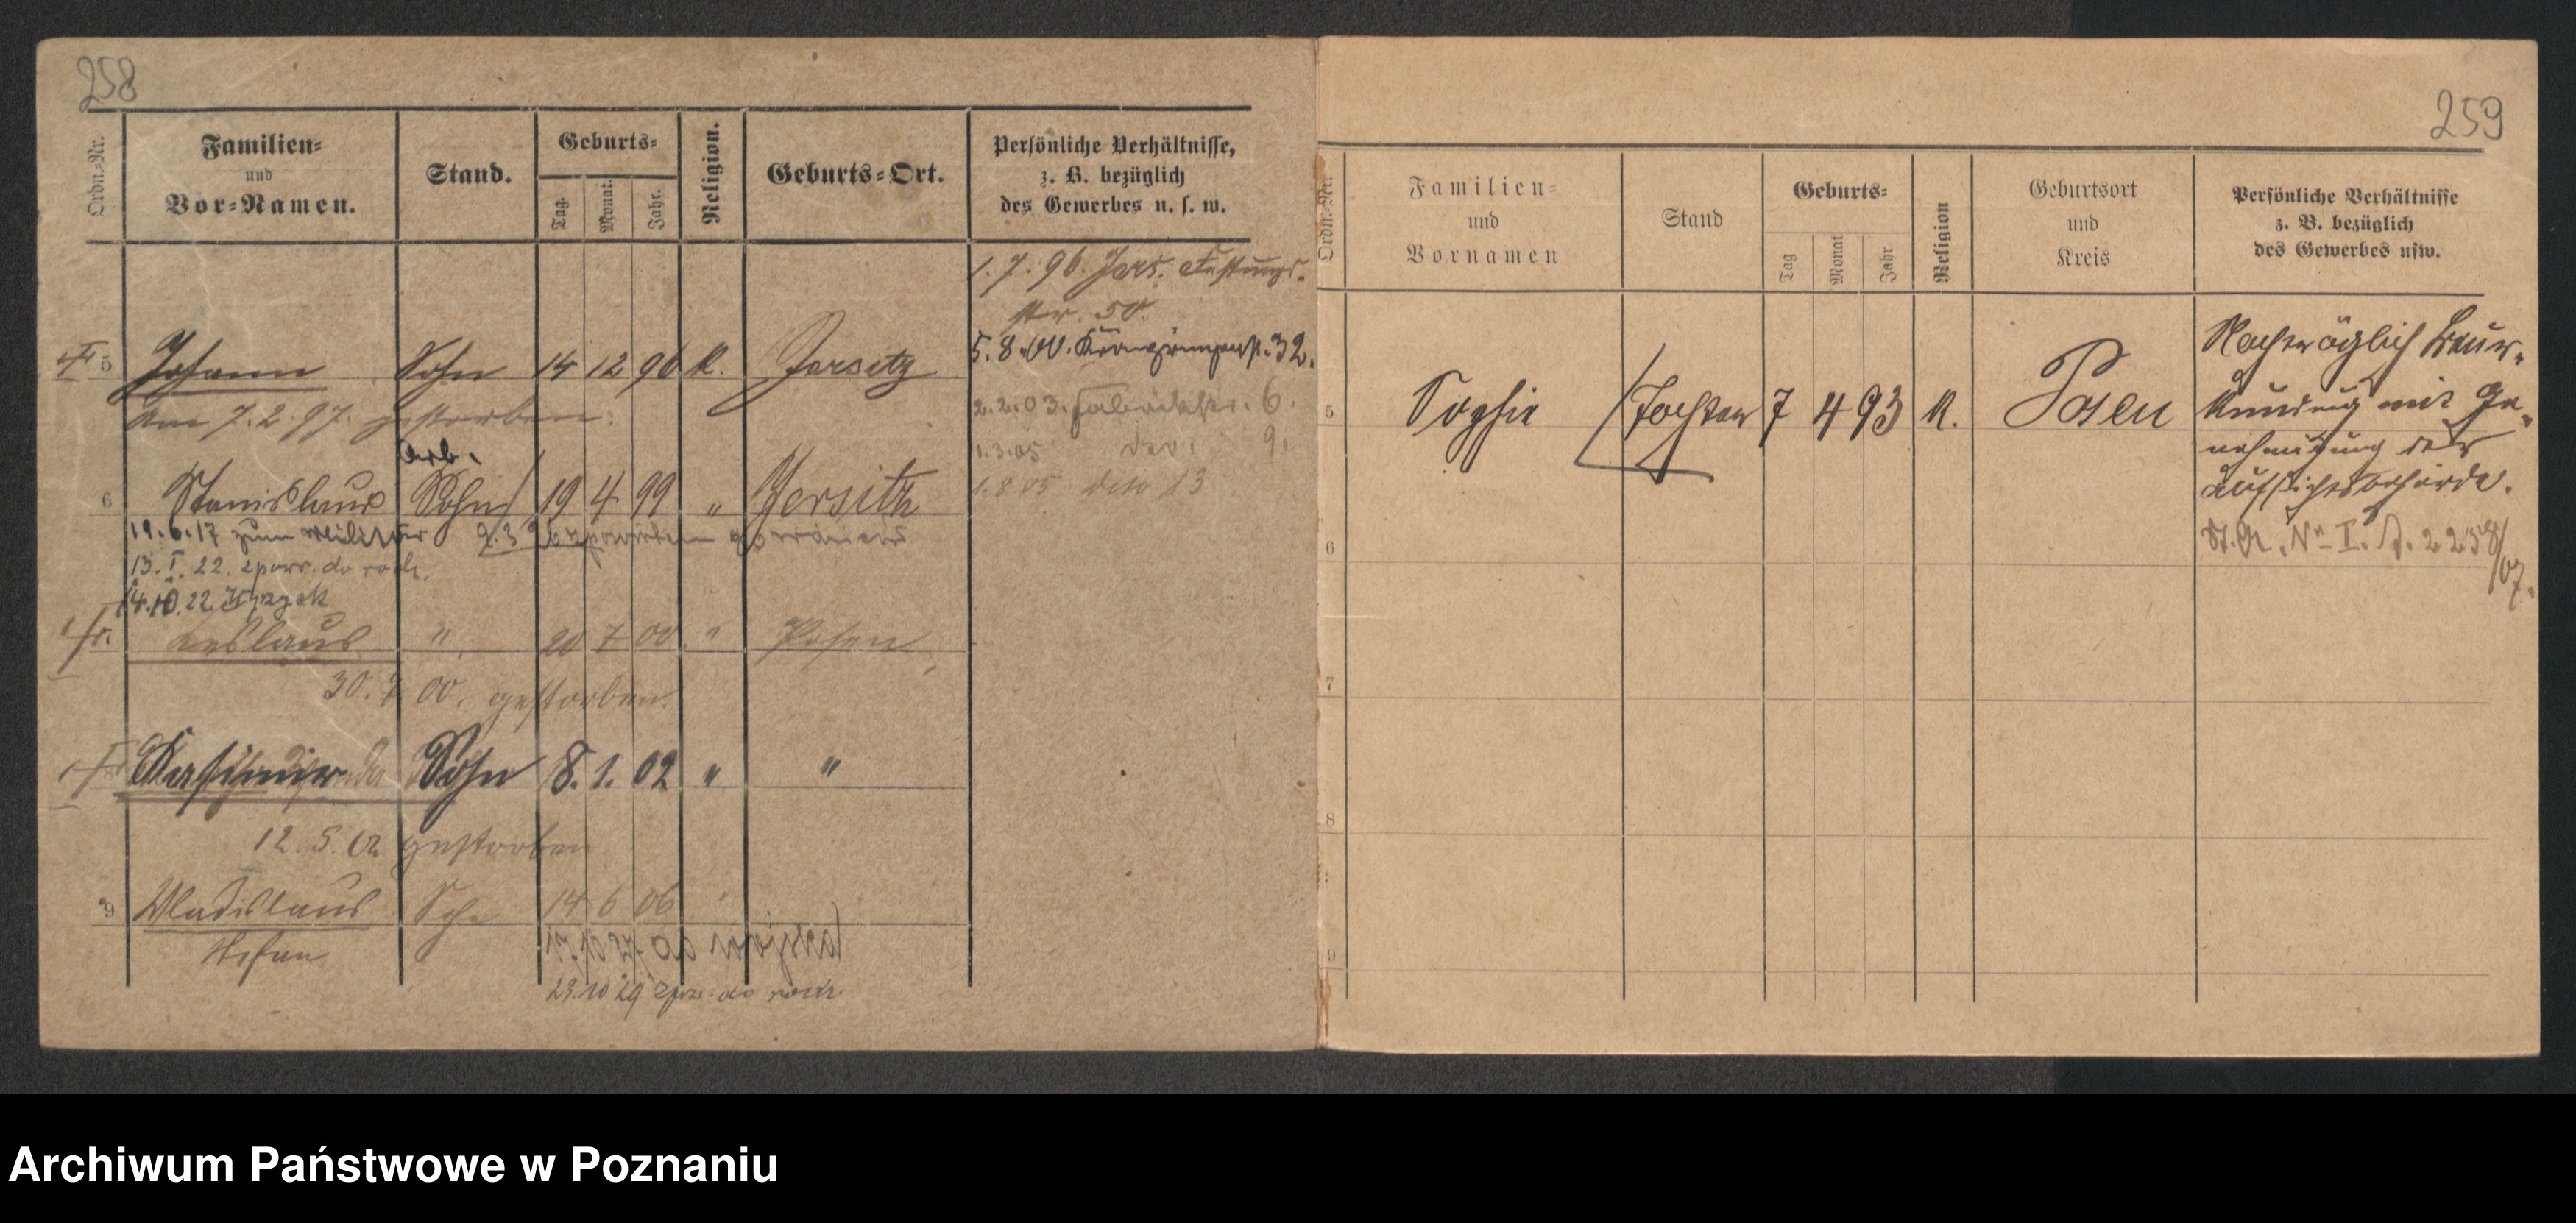 258
Ordn.-Nr.
Familien-
und
Vor-Namen.
Stand.
Geburts-
Tag.
Monat.
Jahr.
Religion.
Geburts-Ort.
Persönliche Verhältnisse,
z. B. bezüglich
des Gewerbes u. s. w.
1. 7. 96. Jers. Festungs-
str. 50.
5. 8. 00. 32.
2. 2. 03. Fabrikstr. 6.
1. 3. 05 9.
1. 8. 05 dito 13
5 Johann Sohn 14 12 96 K. Jersitz
am 7. 2. 97. gestorben.
Arb.
6 Stanislaus Sohn 19 4 99 " Jersitz
19. 6. 17 zum Militär
13. I. 22. zpow. do rodz.
14. 10. 22
" 20 7 00 " Posen
30. 7. 00. gestorben.
Kasimir Sohn 8. 1. 02 " "
12. 5. 02 gestorben
9 Wladislaus Sohn 14 6 06 "
Stefan
23. 10 29 do rodz.
259
Ordn.-Nr.
Familien-
und
Vornamen
Stand
Geburts-
Tag
Monat
Jahr
Religion
Geburtsort
und
Kreis
Persönliche Verhältnisse
z. B. bezüglich
des Gewerbes usw.
5 Sophie Tochter 7 4 93 K. Posen
Nachträglich beur-
kundung mit Ge-
nehmigung der
Aufsichtsbehörde.
St. A. No I. J. 2258/07.
6
7
8
9
Archiwum Państwowe w Poznaniu